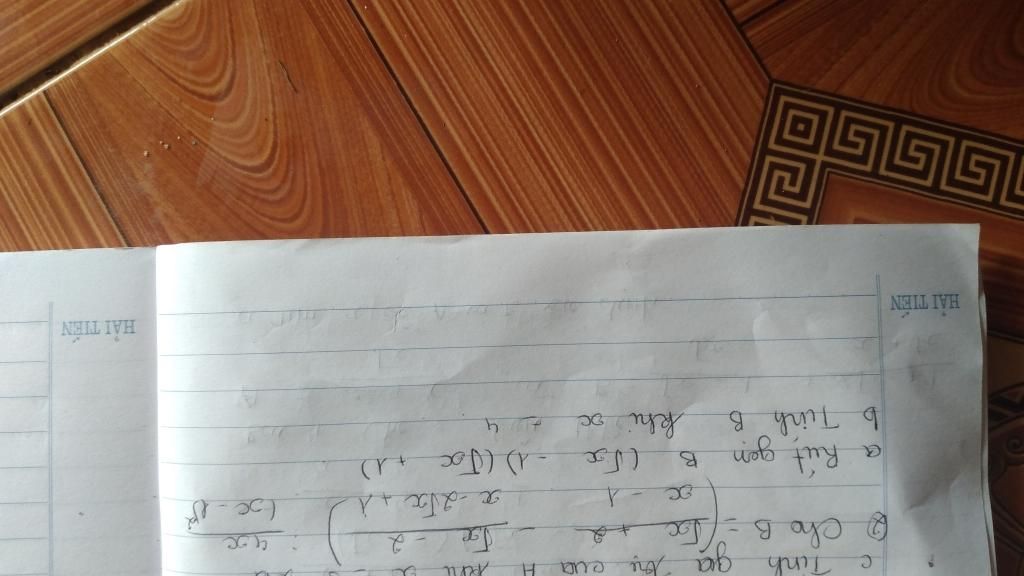 HẢI TIẾN
HẢI TIẾN
c Tính giá trị của A khi x =
② Cho B = ( \frac{√x + 2}{x - 1} - \frac{√x - 2}{x - 2√x + 1} ) : \frac{4x}{(x - 1)²}
a Rút gọn B (√x - 1) (√x + 1)
b Tính B khi x = 4